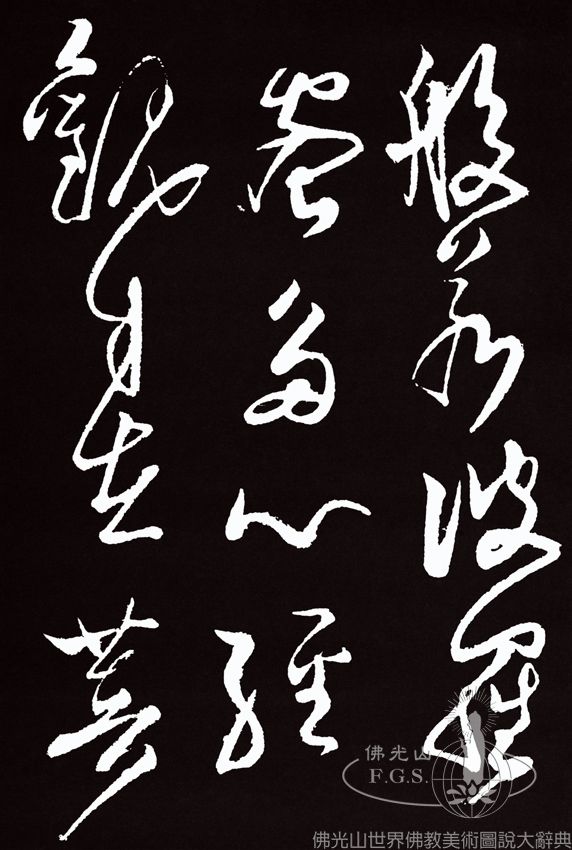 般若波羅
蜜多心經
觀自在菩
佛光山
F.G.S.
佛光山世界佛教美術圖說大辭典